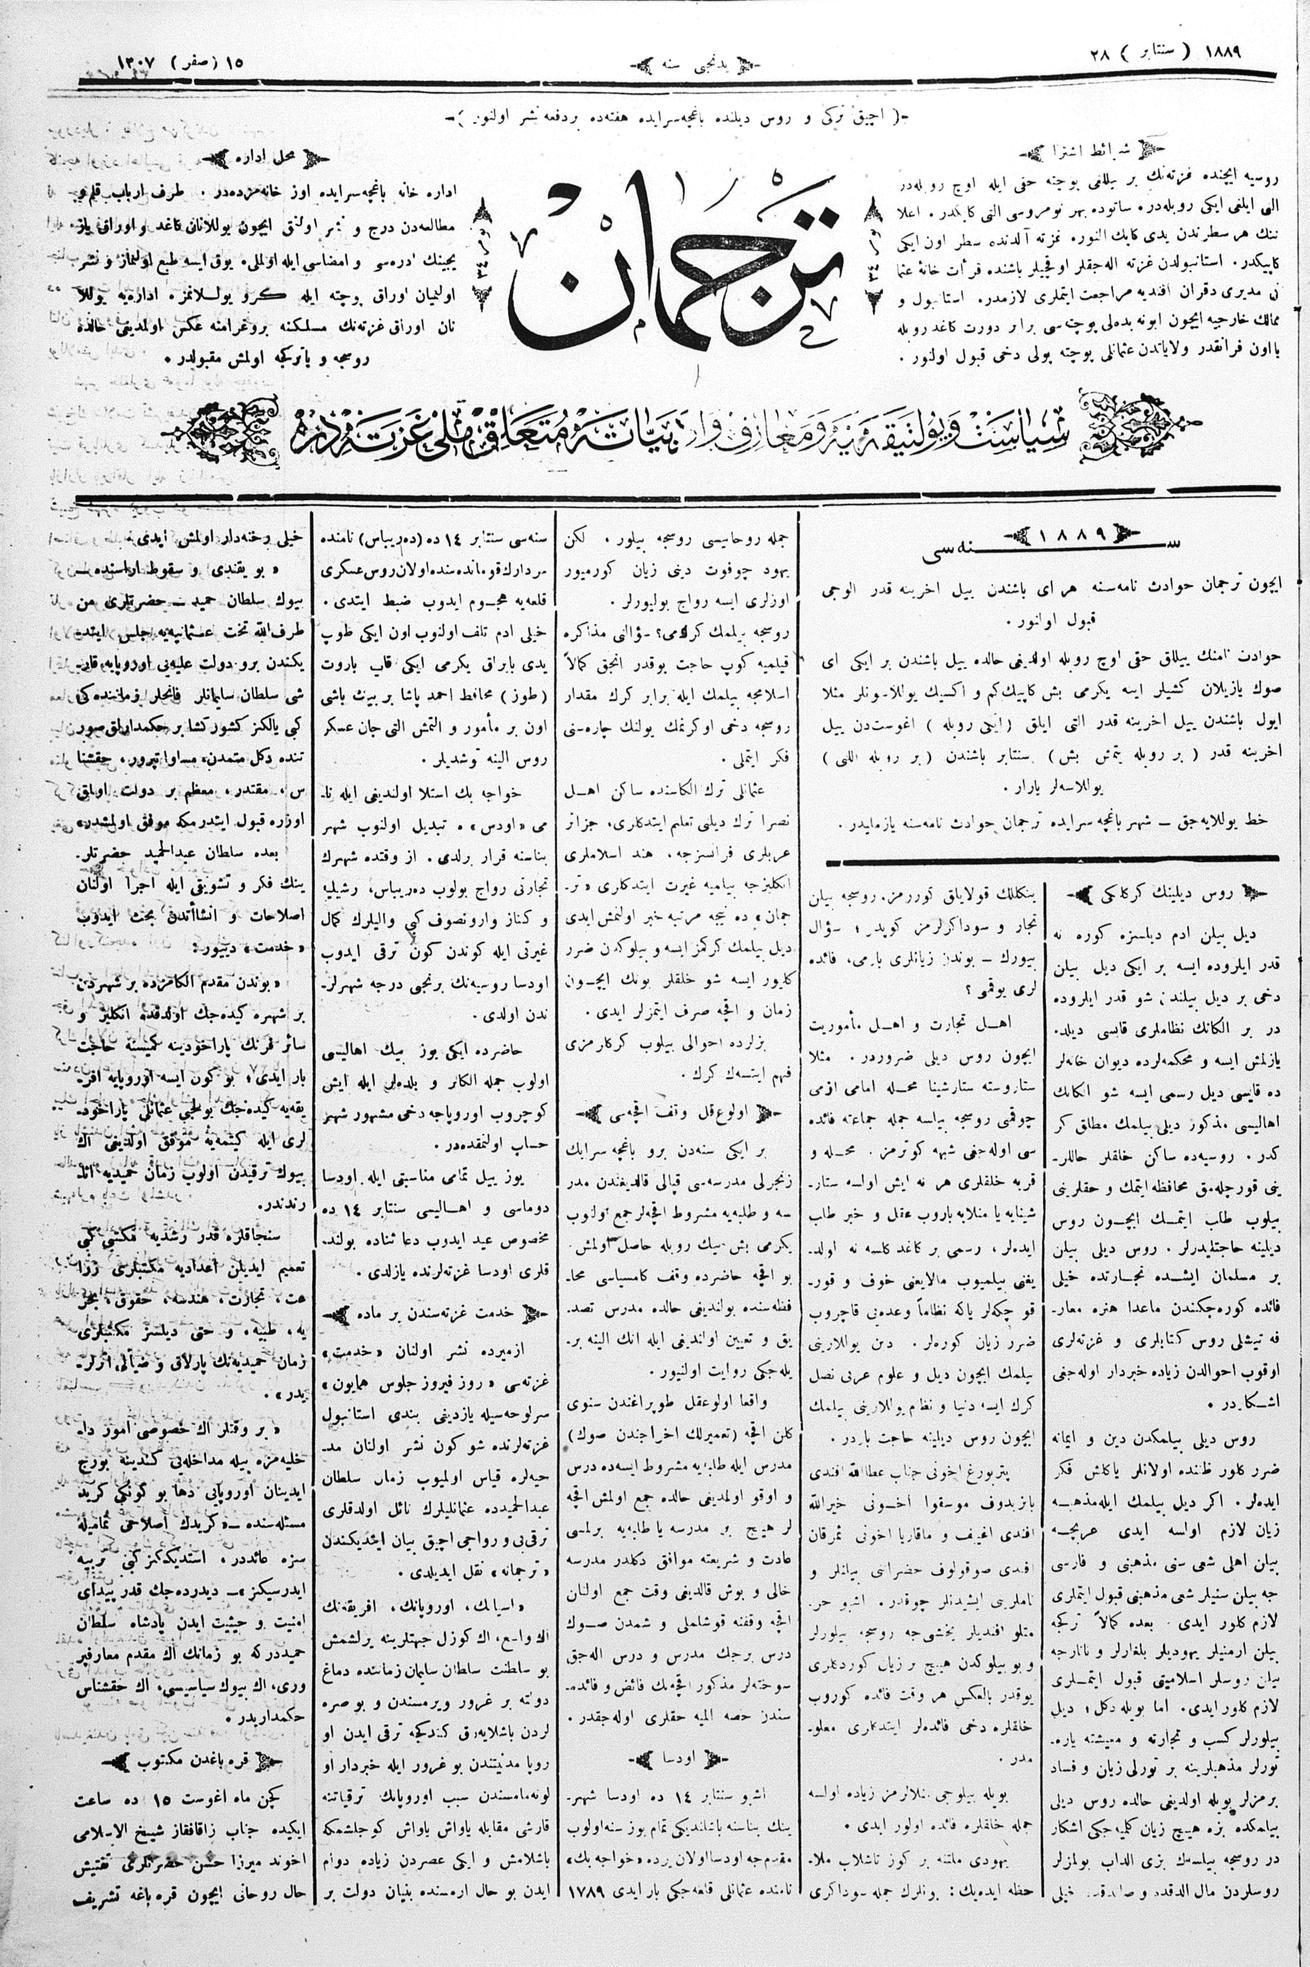 ١٨٨٩ ( سنتابر ) ٢٨
يدنجى سنه
١٥ (صفر) ١٣٠٧
( اچيق تركى و روس ديلنده باغچه‌سرايده هفته‌ده بر دفعه نشر اولنور )
شرائط اشترا
روسيه ايچنده غزته‌نك بر ييللغى پوچته حقى ايله اوچ روبله‌در
الى ايلغى ايكى روبله‌در. ساتوده بهر نومروسى التى كاپكدر. اعلا
ننك هر سطرندن يدى كاپك النور. غزته آلدنده سطر اون ايكى
كاپيكدر. استانبولدن غزته اله‌جقلر باشنده قرأت خانهٔ عثما
نى مديرى افنديه مراجعت ايتملرى لازمدر. استانبول و
ممالك خارجيه ايچون ابونه بدلى پوچته‌سى برابر دورت كاغد روبله
يا اون فرانقدر ولاياتدن عثمانلى پوچته پولى دخى قبول اولنور.
ترجمان
١٥
نومرو ٣٤
نومرو ٣٤
محل اداره
اداره خانه باغچه‌سرايده اوز خانه‌مزده‌در. طرف ارباب قلم و
مطالعه‌دن درج و نشر اولنق ايچون يوللانان كاغد و اوراق ياز
يجينك ادره‌سى و امضاسى ايله اولملى. يوق ايسه طبع اولنماز و نشر
اولنميان اوراق پوچته ايله كرو يوللانمز. اداره‌يه يوللا
نان اوراق غزته‌نك مسلكنه پروغرامنه عكس اولمديغى حالده
روسجه و ياتركجه اولمش مقبولدر.
سياست و پولتيقه‌يه و معارف و ادبياته متعلق ملى غزته‌در
١٨٨٩
سنه‌سى
ايچون ترجمان حوادث نامه‌سنه هر اى باشندن ييل اخرينه قدر الوجى
قبول اولنور.
حوادث نامنك ييللق حقى اوچ روبله اولديغى حالده ييل باشندن بر ايكى اى
صوك يازيلان كشيلر ايسه يكرمى بش كاپيك كم و اكسيك يوللاسونلر مثلا
ايول باشندن ييل اخرينه قدر التى ايلق (ايكى روبله) اغوست‌دن ييل
اخرينه قدر (بر روبله يتمش بش) سنتابر باشندن (بر روبله اللى)
يوللاسه‌لر يارار.
خط يوللايه‌جق ـ شهر باغچه سرايده ترجمان حوادث نامه‌سنه يازملیدر.
روس ديلينك كركلكى
ديل بيلن ادم ديلسزه كوره نه
قدر ايلروده ايسه بر ايكى ديل بيلن
دخى بر ديل بيلندن شو قدر ايلروده
در بر الكانك نظاملرى قايسى ديلده
يازلمش ايسه و محكمه‌لرده ديوان خانه‌لر
ده قايسى ديل رسمى ايسه شو الكانك
اهاليسى مذكور ديلى بيلمك مطلق كر
كدر. روسيه‌ده ساكن خلقلر حاللر-
ينى قورچله‌مق محافظه ايتمك و حقلرينى
بيلوب طلب ايتمك ايچون روس
ديلينه حاجتليدرلر. روس ديلى بيلن
بر مسلمان ايشده تجارتده خيلى
فائده كوره‌جكندن ماعدا هنره معار-
فه تيشلى روس كتابلرى و غزته‌لرى
اوقوب احوالدن زياده خبردار اوله‌جغى
اشكاردر.
روس ديلى بيلمكدن دين و ايمانه
ضرر كلور ظننده اولانلر ياكلش فكر
ايده‌لر. اكر ديل بيلمك ايله مذهبه
زيان لازم اولسه ايدى عربچه
بيلن اهلى شعى سنى مذهبنى و فارسى
جه بيلن سنيلر شعى مذهبنى قبول ايتملرى
لازم كلور ايدى. بعده كمالاً تركجه
بيلن ارمنيلر يهوديلر بلغارلر و تاتارجه
بيلن روسلر اسلاميتى قبول ايتملرى
لازم كلور ايدى. اما بويله دكل؛ ديل
بيلورلر كسب و تجارته و معيشته ياره-
تورلر مذهبلرينه بر تورلى زيان و فساد
برمزلر بويله اولديغى حالده روس ديلى
بيلمكده بزه هيچ زيان كلميه‌جكى اشكار
در روسجه بيلسه‌ك بزى الداب بولمزلر
روسلردن مال الدقده و صاتدقده خيلى
ينكللك قولايلق كوررمز. روسجه بيلن
تجار و سوداكرلرمز كوبدر؛ سؤال
بيورك ـ بوندن زيانلرى بارمى، فائده
لرى يوقمى؟
اهل تجارت و اهل مأموريت
ايچون روس ديلى ضروردر. مثلا
ستاروسته ستارشينا محله امامى اوزمى
چوقمى روسجه بيلسه جمله جماعته فائده
سى اوله‌جغى شبهه كوترمز. محله و
قريه خلقلرى هر نه ايش اولسه ستار-
شينايه يا منلايه باروب عقل و خبر طلب
ايده‌لر، رسمى بر كاغد كلسه نه اولد-
يغنى بيلميوب مالايعنى خوف و قور-
قو چكه‌لر ياكه نظاماً وعده‌نى قاچروب
ضرر زيان كوره‌لر. دين يوللارينى
بيلمك ايچون ديل و علوم عربى نصل
كرك ايسه دنيا و نظام يوللارينى بيلمك
ايچون روس ديلينه حاجت باردر.
پتربورغ اخونى جناب عطاالله افندى
بايزيدوف موسقوا اخونى خيرالله
افندى اغيف و ماقاريا اخونى ثمرقان
افندى صوقولوف حضراتى بيلنلر و
ناملرينى ايشيدنلر چوقدر. اشبو حر-
متلو افنديلر يخشى‌جه روسجه بيلورلر
و بو بيلوكدن هيچ بر زيان كوردكلرى
يوقدر بالعكس هر وقت فائده كوروب
خلقلره دخى فائده‌لر ايتدكلرى معلو-
مدر.
بويله بيلوجى منلالرمز زياده اولسه
جمله خلقلره فائده اولور ايدى.
يهودى ملتنه بر كوز تاشلاب ملا-
حظه ايده‌يك: بونلرك جمله سوداكرى
جمله روحانيسى روسجه بيلور. لكن
يهود چوفوت دينى زيان كورميور
اوزلرى ايسه رواج بوليورلر.
روسجه بيلمك كركمى؟ سؤالنى مذاكره
قيلميه كوپ حاجت يوقدر انجق كمالاً
اسلامجه بيلمك ايله برابر كرك مقدار
روسجه دخى اوكرنمك يولنك چاره‌سنى
فكر ايتملى.
عثمانلى ترك الكاسنده ساكن اهل
نصرا ترك ديلى تعلم ايتدكلرى، جزائر
عربلرى فرانسزجه، هند اسلاملرى
انكليزجه بيلميه غيرت ايتدكلرى «تر-
جمان» ده نيجه مرتبه خبر اولنمش ايدى
ديل بيلمك كركمز ايسه و بيلوكدن ضرر
كلور ايسه شو خلقلر بونك ايچون
زمان و اقچه صرف ايتمزلر ايدى.
بزلرده احوالى بيلوب كركلرمزى
فهم ايتسه‌ك كرك.
اولوعقل وقف اقچه‌سى
بر ايكى سنه‌دن برو باغچه سرايك
زنجرلى مدرسه‌سى قپالى قالديغندن مدر
سه و طلبه‌يه مشروط اقچه‌لر جمع اولنوب
يكرمى بش بيك روبله حاصل اولمش.
بو اقچه حاضرده وقف كامسياسى محا-
فظه‌سنده بولنديغى حالده مدرس تصد-
يق و تعيين اولنديغى ايله انك الينه بر-
يله‌جكى روايت اولنيور.
واقعا اولوعقل طوپراغندن سنوى
كلن اقچه (تعميرلك اخراجندن صوك)
مدرس ايله طلبه‌يه مشروط ايسه‌ده درس
و اوقو اولمديغى حالده جمع اولمش اقچه
لر هيچ بر مدرسه يا طلبه‌يه برلمسى
عادت و شريعته موافق دكلدر مدرسه
خالى و بوش قالديغى وقت جمع اولنان
اقچه وقفنه قوشلملى و شمدن صوك
درس برجك مدرس و درس اله‌جق
سوخته‌لر مذكور اقچه‌نك فائض و فائده-
سندن حصه الميه حقلرى اوله‌جقدر.
اودسا
اشبو سنتابر ١٤ ده اودسا شهر-
ينك بناسنه باشلانديكى تمام يوز سنه اولوب
مقدمجه اودسا اولان يرده «خواجه بك»
نامنده عثمانلى قلعه‌جكى بار ايدى ١٧٨٩
سنه‌سى سنتابر ١٤ ده (ده‌ريباس) نامنده
سردارك قومانده‌سنده اولان روس عسكرى
قلعه‌يه هجوم ايدوب ضبط ايتدى.
خيلى ادم تلف اولنوب اون ايكى طوپ
يدى بايراق يكرمى ايكى قاب باروت
(طوز) محافظ احمد پاشا بر بيك باشى
اون بر مأمور و التمش التى جان عسكر
روس الينه توشديلر.
خواجه بك استلا اولنديغى ايله نا-
مى «اودس» ه تبديل اولنوب شهر
بناسنه قرار برلدى. از وقتده شهرك
تجارتى رواج بولوب ده‌ريباس، رشيليو
و كناز وارونصوف كبى واليلرك كمال
غيرتى ايله كوندن كون ترقى ايدوب
اودسا روسيه‌نك برنجى درجه شهرلر-
ندن اولدى.
حاضرده ايكى يوز بيك اهاليسى
اولوب جمله الكالر و بلده‌لر ايله ايش
كوچروب اوروپاجه دخى مشهور شهر
حساب اولنمقده‌در.
يوز ييل تمامى مناسبتى ايله اودسا
دوماسى و اهاليسى سنتابر ١٤ ده
مخصوص عيد ايدوب دعا ثناده بولند-
قلرى اودسا غزته‌لرنده يازلدى.
خدمت غزته‌سندن بر ماده
ازميرده نشر اولنان «خدمت»
غزته‌سى «روز فيروز جلوس همايون»
سرلوحه‌سيله يازديغى بندى استانبول
غزته‌لرنده شو كون نشر اولنان مد-
حيه‌لره قياس اولميوب زمان سلطان
عبدالحميدده عثمانليلرك نائل اولدقلرى
ترقى‌يى و رواجى اچيق بيان ايتديكندن
«ترجمانه» نقل ايديلدى.
«اسيانك، اوروپانك، افريقه‌نك
اك واسع، اك كوزل جهتلرينه يرلشمش
بو سلطنت سلطان سليمان زماننده دماغ
دولته بر غرور ويرمسندن و بو صره
لردن باشلايه‌رق كندكجه ترقى ايدن او
روپا مدنيتندن بو غرور ايله خبردار او
لونه‌مامسندن سبب اوروپانك ترقياتنه
قارشى مقابله ياواش ياواش كوجلشمكه
باشلامش و ايكى عصردن زياده دوام
ايدن بو حال اره‌سنده بنيان دولت بر
خيلى رخنه‌دار اولمش ايدى.
«بو يقندى و سقوط اراسنده ـ
بيوك سلطان حميد ـ حضرتلرى من
طرف الله تخت عثمانيه‌يه جلوس ايتدـ
يكندن برو دولت عليه‌يى اوروپايه قار-
شى سلطان سليمانلر فاتحلر زماننده‌كى
كبى يالكز كشور كشا بر حكمدارلق صور-
تنده دكل متمدن، مساواتپرور، حقشنا
س، مقتدر، معظم بر دولت اولمق
اوزره قبول ايتدرمكه موفق اولمشدر»
بعده سلطان عبدالحميد حضرتلر-
ينك فكر و تشويقى ايله اجرا اولنان
اصلاحات و انشاأتدن بحث ايدوب
«خدمت» دييور:
«بوندن مقدم الكامزده بر شهردن
بر شهره كيده‌جك اولدقده انكليز و
سائر فرنك پاراخودينه كميسنه حاجت
بار ايدى؛ بو كون ايسه اوروپايه افر-
يقه‌يه كيده‌جك يولجى عثمانلى پاراخود-
لرى ايله كيتمه‌يه موفق اولديغى اك
بيوك ترقيدن اولوب زمان حميديه اثلـ
رندندر.
سنجاقلره قدر رشديه مكتبى كبى
تعميم ايديلن اعداديه مكتبلرى زرا
عت، تجارت، هندسه، حقوق، بحر
يه، طبيه، و حتى ديلسز مكتبلرى
زمان حميديه‌نك پارلاق و ضيالى اثرلر-
يدر».
«بر وقتلر اك خصوصى امور دا-
خليه‌مزه بيله مداخله‌يى كندينه بورج
ايدينان اوروپايى دها بو كونكى كريد
مسئله‌سنده ـ «كريدك اصلاحى تماميله
سزه عائددر، استديككز كبى تربيه
ايدرسيكز» ـ ديدرده‌جك قدر پيداى
امنيت و حيثيت ايدن پادشاه سلطان
حميددركه بو زمانك اك مقدم معارفپر
ورى، اك بيوك سياسيسى، اك حقشناس
حكمداريدر.
قره باغدن مكتوب
كچن ماه اغوست ١٥ ده ساعت
ايكيده جناب زاقافقاز شيخ الاسلامى
اخوند ميرزا حسن حضرتلرى تفتيش
حال روحانى ايچون قره باغه تشريف